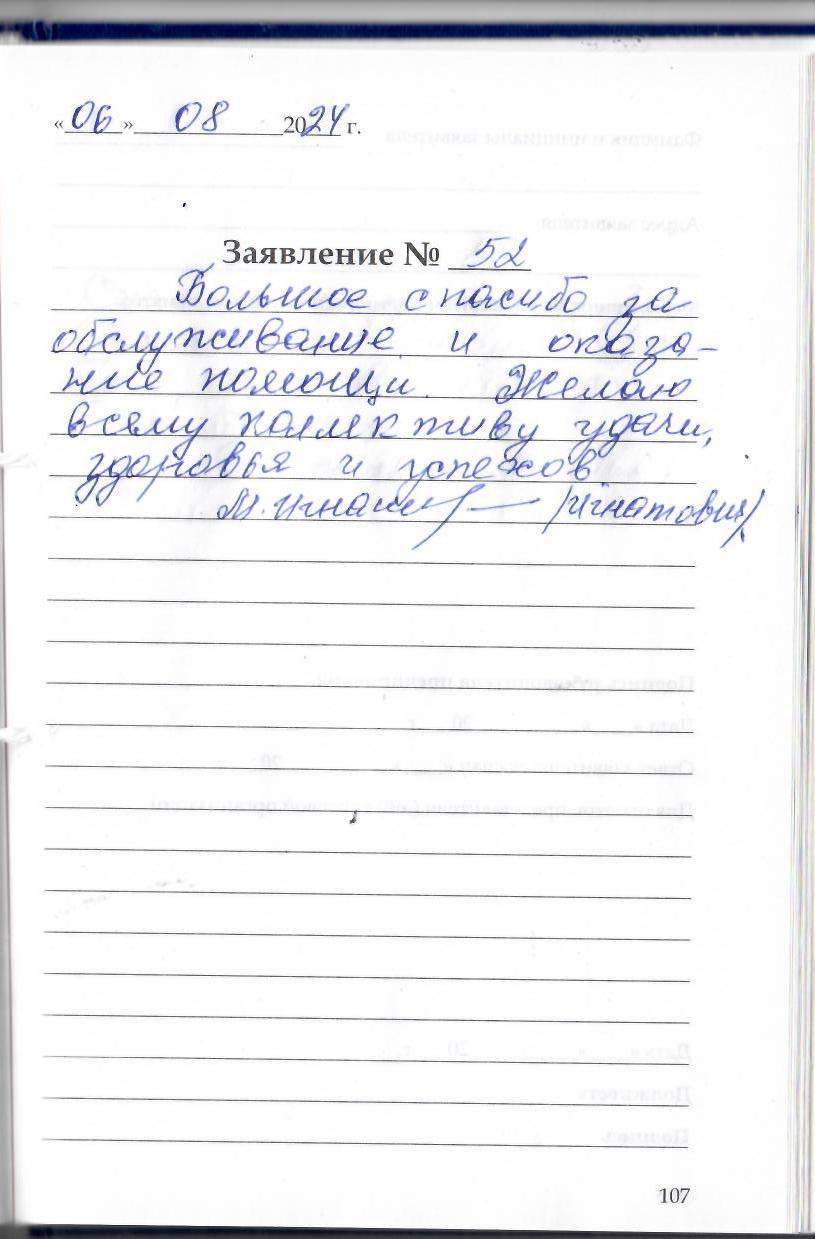 «06» 08 2024 г.
Заявление № 52
Большое спасибо за
обслуживание и оказа-
ние помощи. Желаю
всему коллективу удачи,
здоровья и успехов
М. Игнат /Игнатович/
107